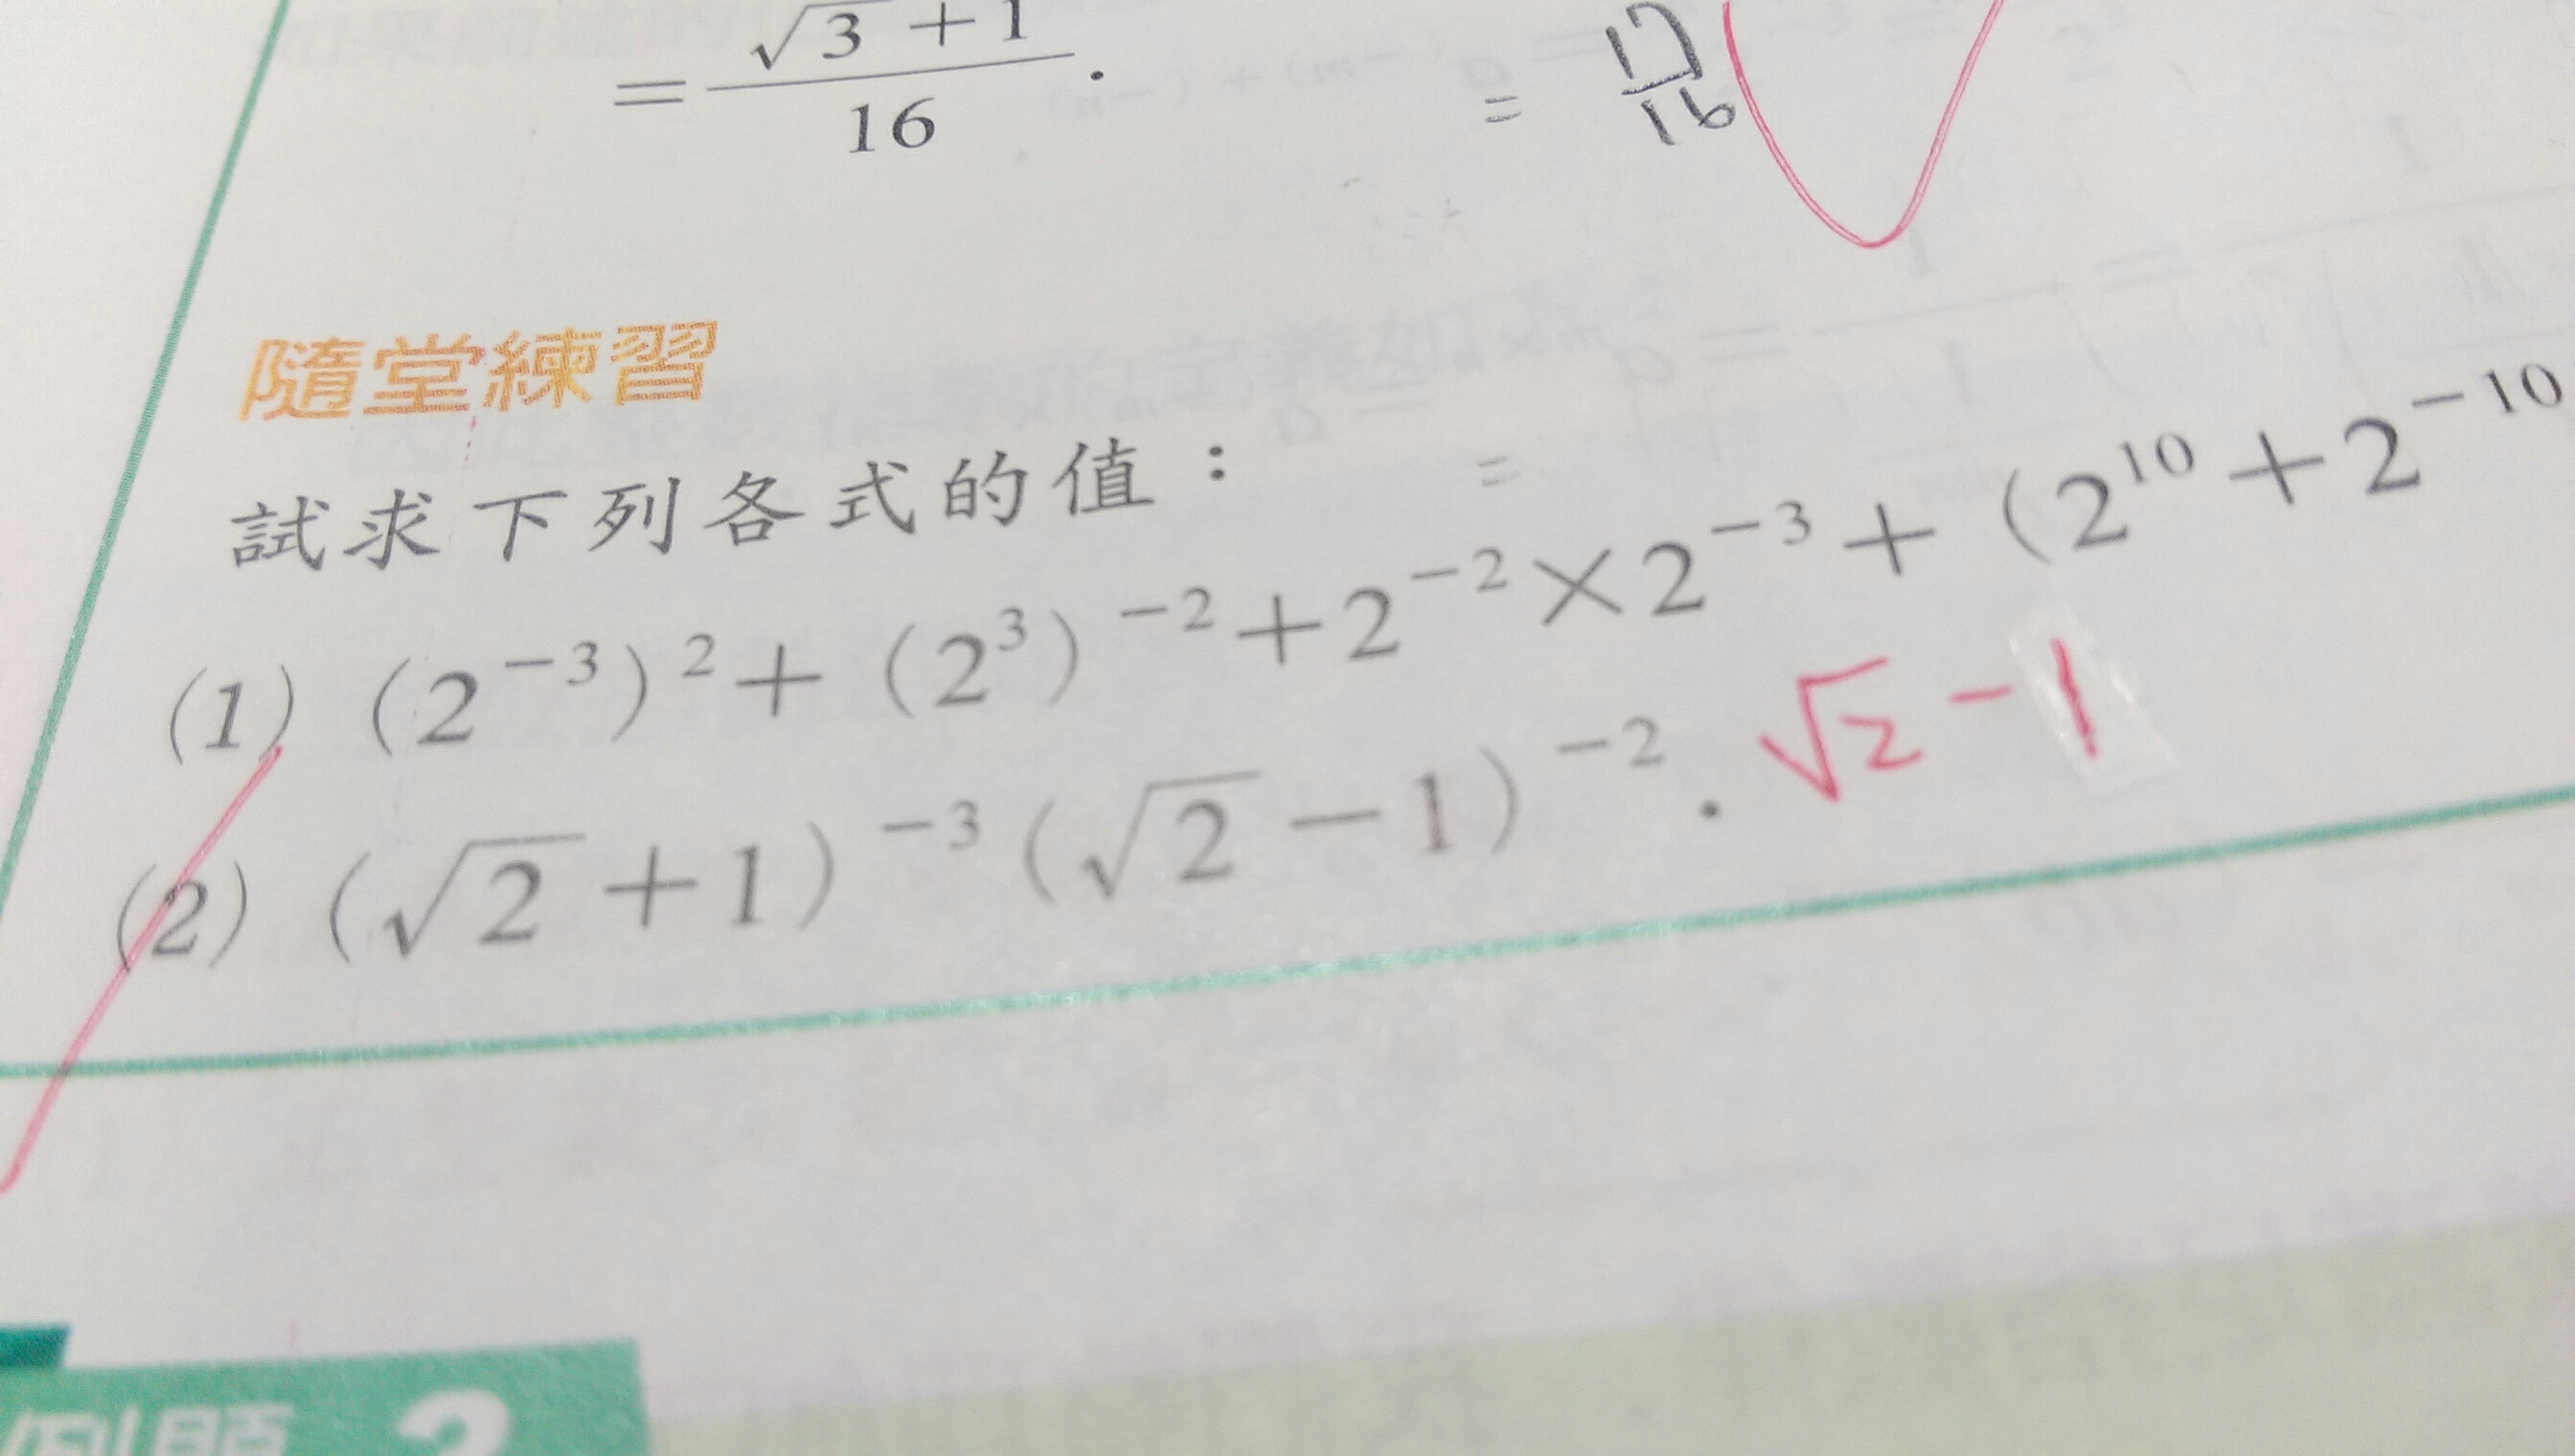 = (√3 + 1)/16 .
= 17/16
隨堂練習
試求下列各式的值：
(1) (2⁻³)² + (2³)⁻² + 2⁻² × 2⁻³ + (2¹⁰ + 2⁻¹⁰
(2) (√2 + 1)⁻³ (√2 − 1)⁻² . √2 − 1
例題 3